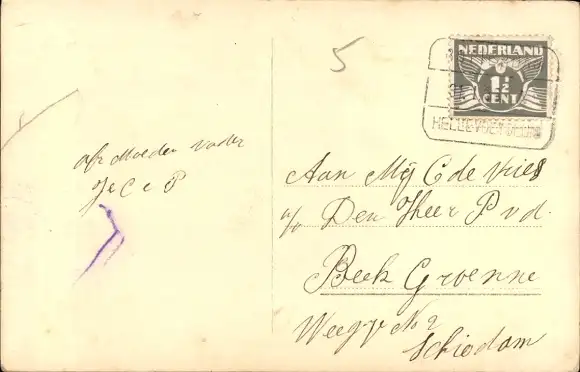 5
NEDERLAND
1½
CENT
HELLEVOETSLUIS
afz Moeder Vader
J C P
Aan Mej C de Vries
a/v Den Heer P v d.
Beek Groenne
Weegje No 2
Schiedam